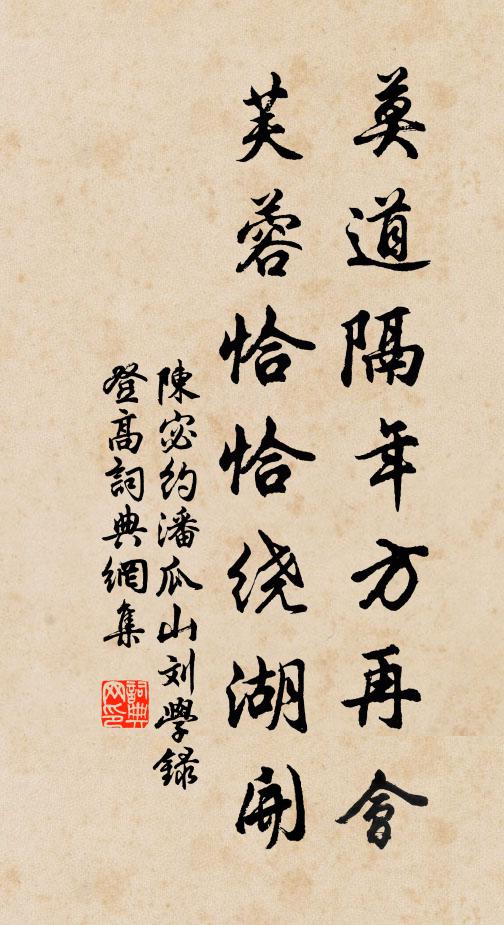 莫道隔年方再會
芙蓉恰恰绕湖開
陳宓约潘瓜山刘學録
登高詞典網集
詞典网印